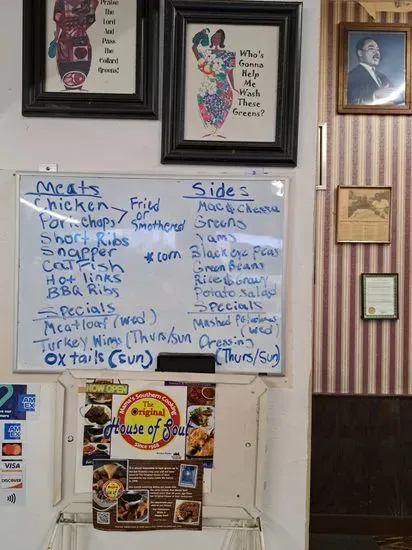 Praise
The
Lord
And
Pass
The
Collard
Greens!
Who's
Gonna
Help
Me
Wash
These
Greens?
Meats
Chicken
Porkchops
Fried
or
Smothered
Short Ribs
Snapper
Catfish
Hot links
BBQ Ribs
*corn
Specials
Meatloaf (Wed)
Turkey Wings (Thurs/Sun
Oxtails (Sun)
Sides
Mac & Cheese
Greens
Yams
Blackeye Peas
Green Beans
Rice & Gravy
Potato Salad
Specials
Mashed Potatoes
(Wed)
Dressing
(Thurs/Sun)
NOW OPEN
Mama's Southern Cooking
The
Original
House of Soul
Since 1968
AM
EX
AM
EX
VISA
DISCOVER